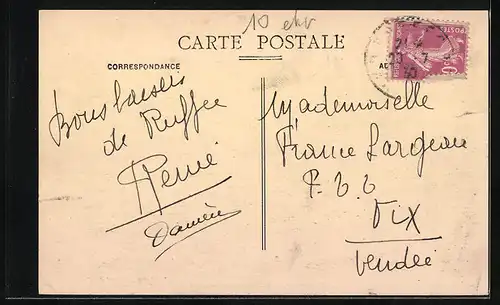 10 ehv
CARTE POSTALE
CORRESPONDANCE
Bons baisers
de Ruffec
Rémi
Damien
Mademoiselle
France Largeau
P.T.T
Vix
Vendée
POSTES